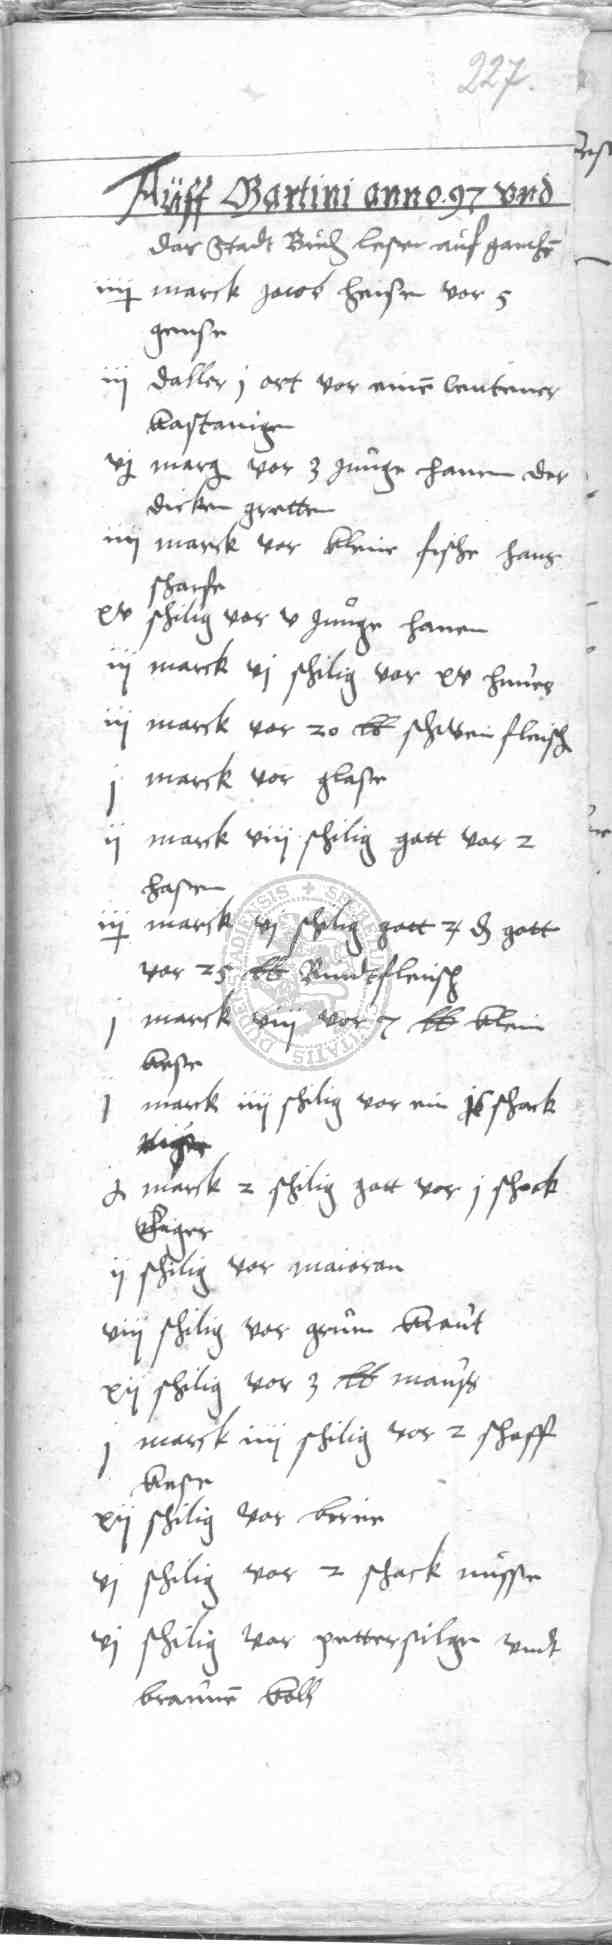 227.
Auff Martini anno. 97 vnd
der Stadt Buch leser auf
iiij marck Jacob hensen vor 5
gense
iij daller j ort vor einē centener
kastanigen
vj marg vor 3 junge hanen der
dicken gretten
iiij marck vor kleine fische hans
scharfe
xv schilig vor v junge hanen
iij marck vj schilig vor xv huner
iij marck vor 20 lb schwein fleisch
j marck vor glase
ij marck viij schilig gott vor 2
hasen
iij marck vj schilig gott 4 d gott
vor 25 lb Rindtfleisch
j marck viij vor 7 lb klein
kese
j marck iiij schilig vor ein schock
j marck 2 schilig gott vor j schock
Eiger
ij schilig vor maioran
viij schilig vor grun kraut
xij schilig vor 3 lb
j marck iiij schilig vor 2 schaff
kese
xij schilig vor berne
vj schilig vor 2 schock nusse
vj schilig vor pettersilge vndt
braunē koll